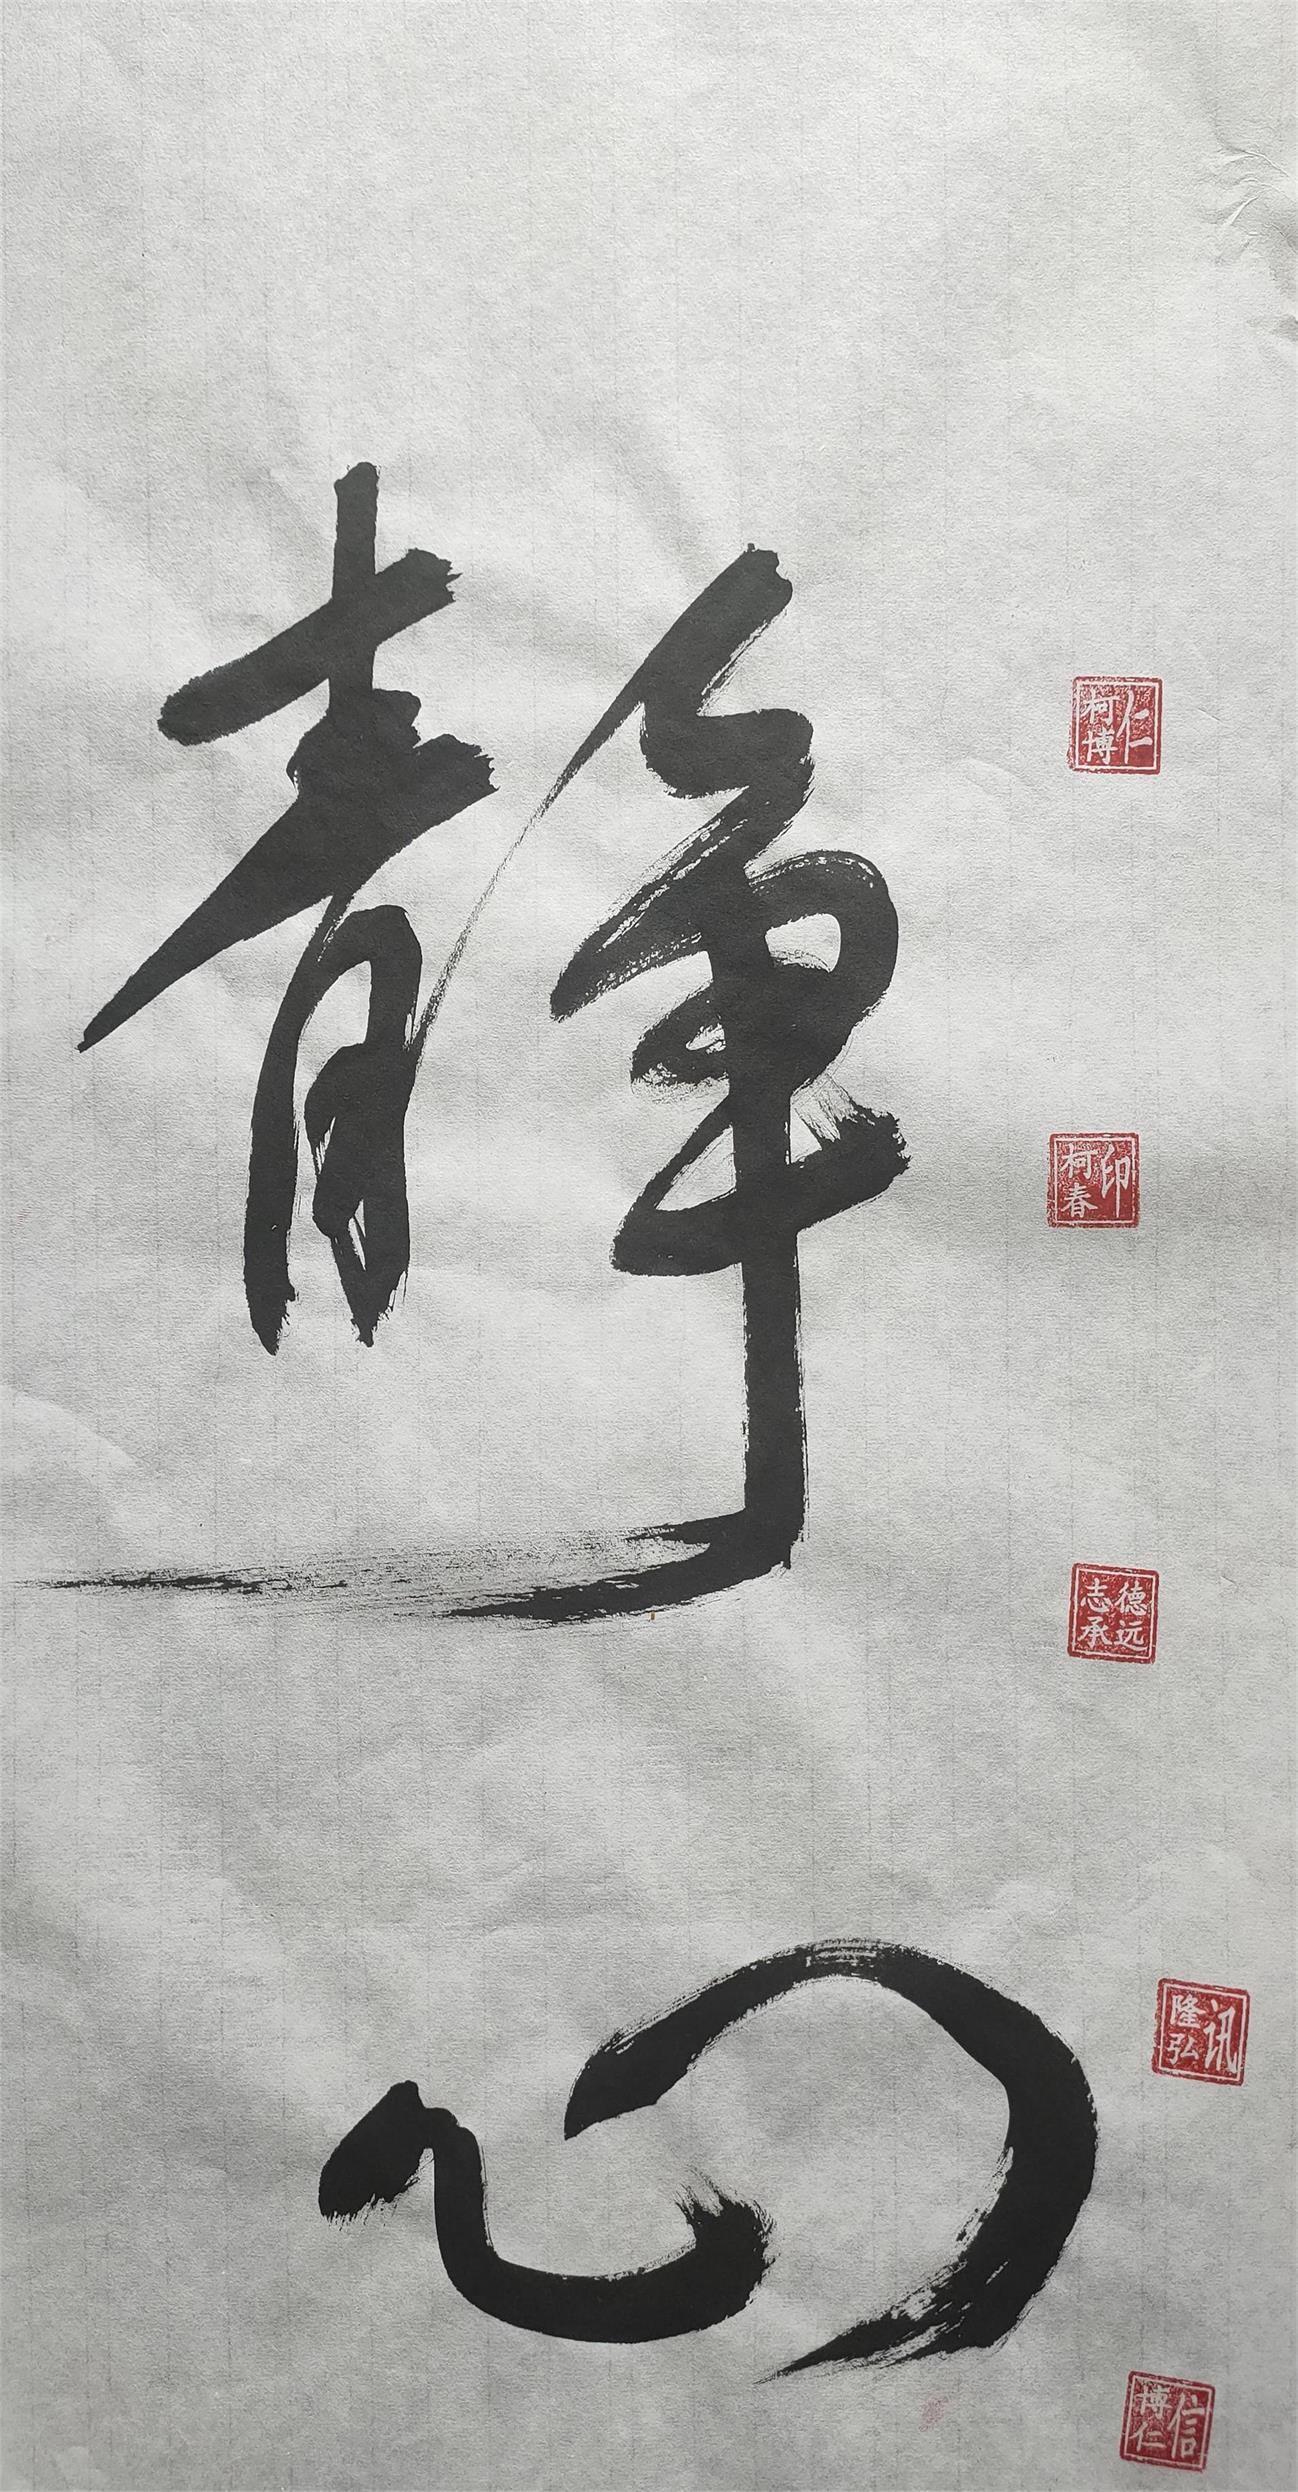 静心
柯博仁
柯春印
志承德远
隆弘讯
博仁信